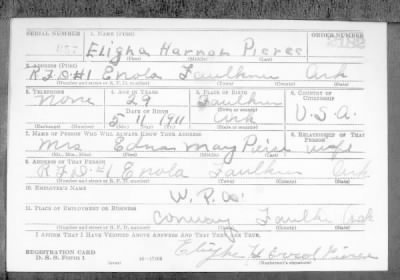 SERIAL NUMBER 1. NAME (Print) ORDER NUMBER
Eligha Harmon Pierce
(First) (Middle) (Last)
2. ADDRESS (Print)
R.F.D.#1 Enola Faulkner Ark
(Number and street or R. F. D. number) (Town) (County) (State)
3. TELEPHONE 4. AGE IN YEARS 5. PLACE OF BIRTH 6. COUNTRY OF CITIZENSHIP
None 29 Faulkner
DATE OF BIRTH U.S.A.
5 11 1911 Ark
(Exchange) (Number) (Mo.) (Day) (Yr.) (State or country)
7. NAME OF PERSON WHO WILL ALWAYS KNOW YOUR ADDRESS 8. RELATIONSHIP OF THAT PERSON
Mrs Edna May Pierce wife
(Mr., Mrs., Miss) (First) (Middle) (Last)
9. ADDRESS OF THAT PERSON
R.F.D.#1 Enola Faulkner Ark
(Number and street or R. F. D. number) (Town) (County) (State)
10. EMPLOYER'S NAME
W.P.A.
11. PLACE OF EMPLOYMENT OR BUSINESS
Conway Faulkn Ark
(Number and street or R. F. D. number) (Town) (County) (State)
I AFFIRM THAT I HAVE VERIFIED ABOVE ANSWERS AND THAT THEY ARE TRUE.
REGISTRATION CARD
D. S. S. Form 1 (Registrant's signature)